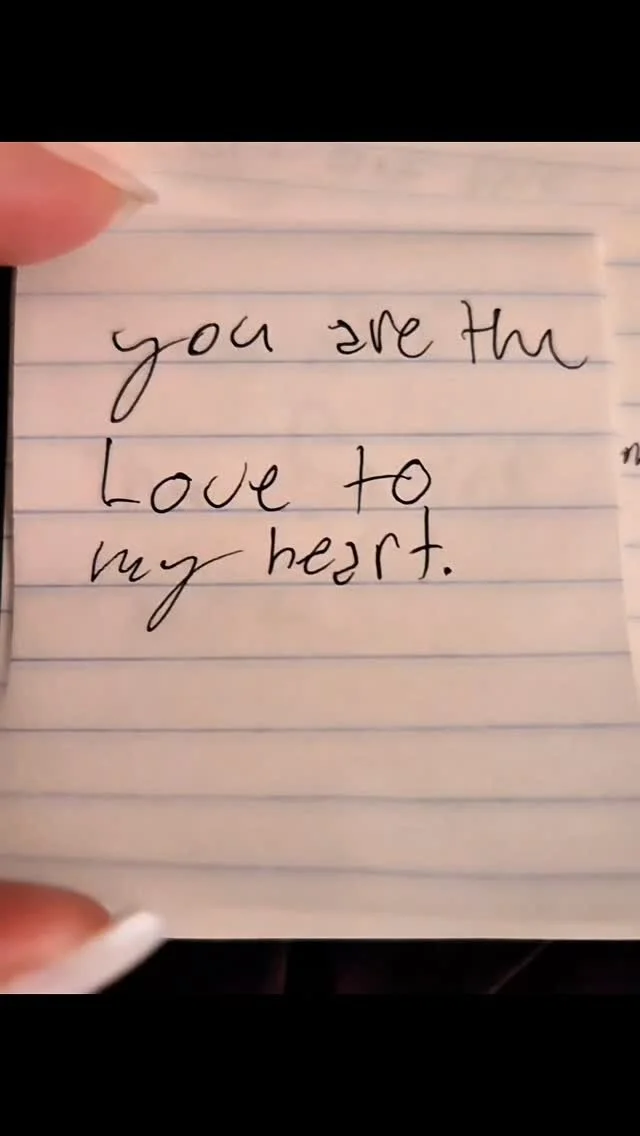 you are the
Love to
my heart.